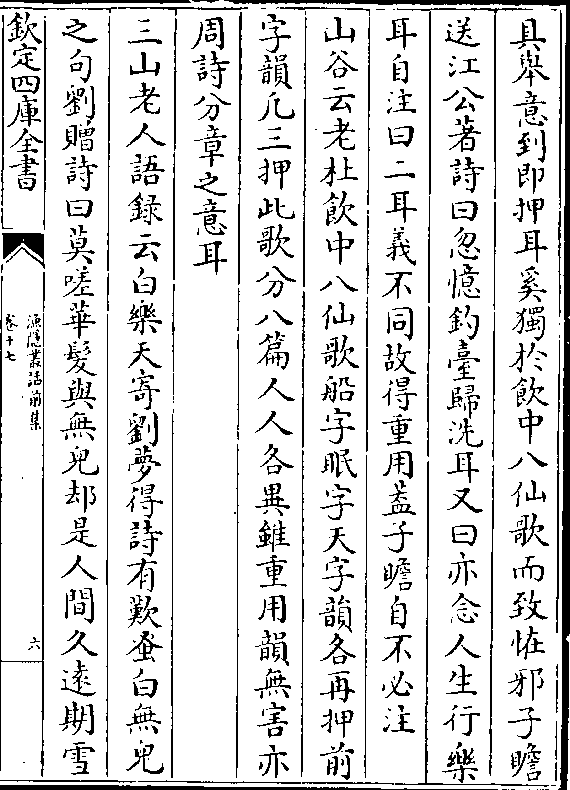 具舉意到即押耳奚獨於飲中八仙歌而致恠邪子瞻
送江公著詩曰忽憶釣臺歸洗耳又曰亦念人生行樂
耳自注曰二耳義不同故得重用葢子瞻自不必注
山谷云老杜飲中八仙歌船字眠字天字韻各再押前
字韻凡三押此歌分八篇人人各異雖重用韻無害亦
周詩分章之意耳
三山老人語錄云白樂天寄劉夢得詩有歎蚤白無兒
之句劉贈詩曰莫嗟華髮與無兒却是人間久遠期雪
欽定四庫全書
漁隱叢話前集
卷十七
六